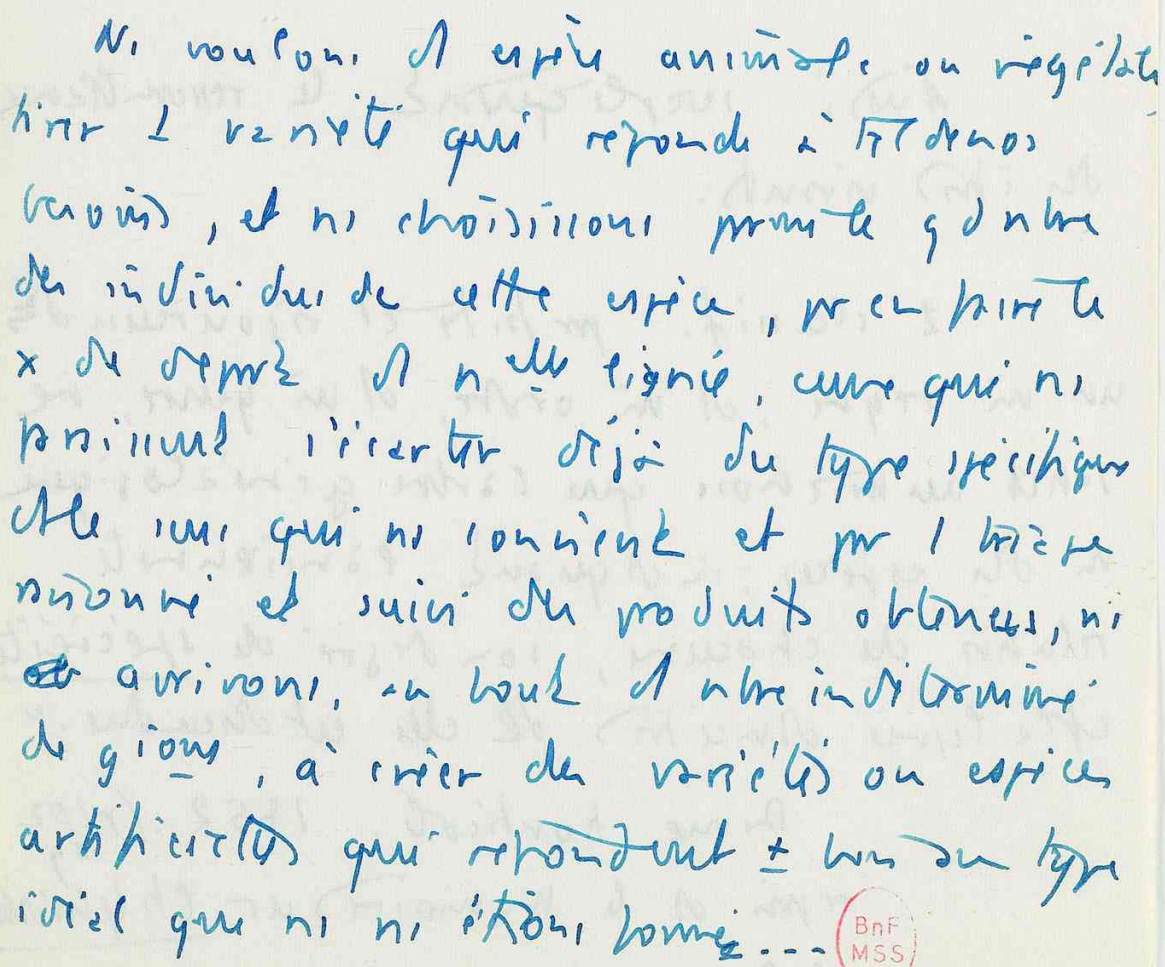 Ns voulons d espèce animale ou végétale
tirer 1 variété qui réponde à tel de nos
besoins, et ns choisissons prmi le gd nbre
des individus de cette espèce, pr en faire le
x de départ d nelle lignée, ceux qui ns
paraissent s'écarter déjà du type spécifique
ds le sens qui ns convient et pr 1 triage
raisonné et suivi des produits obtenus, ns
arrivons, au bout d nbre indéterminé
de gions, à créer des variétés ou espèces
artificielles qui répondent ± bien au type
idéal que ns ns étions formé ...
BnF
MSS